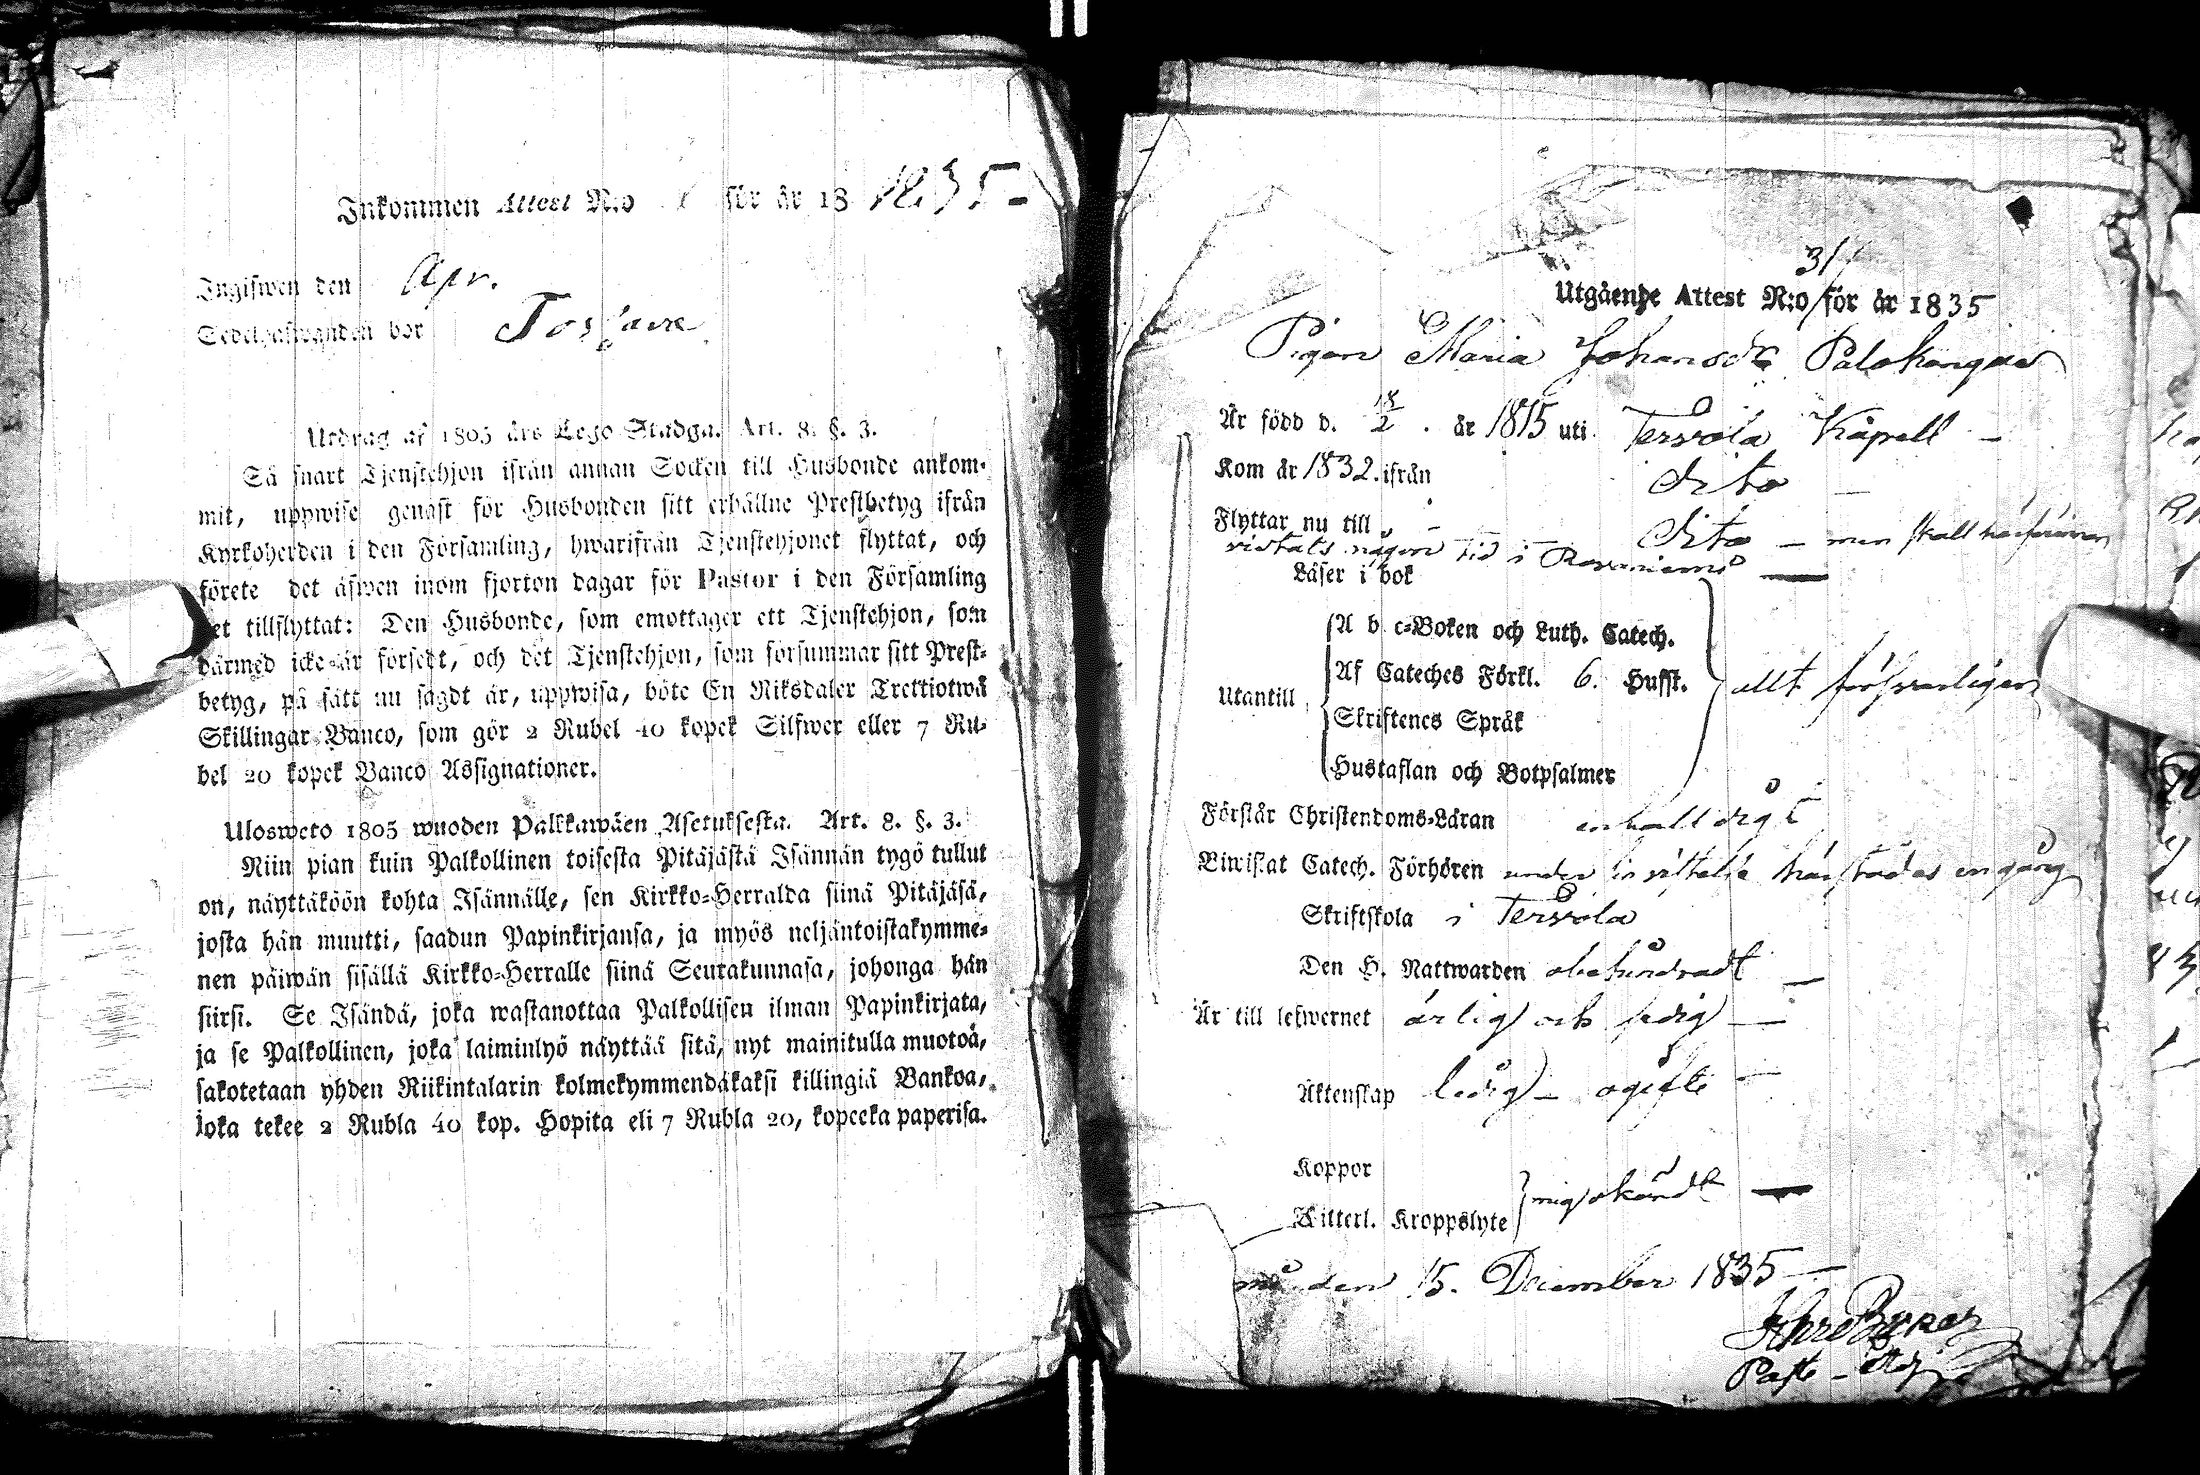 Inkommen Attest N:o för år 18 1835-
Ingifwen den Apr.
Sedelhafwanden bor
Utdrag af 1805 års Lego-Stadga. Art. 8. §. 3.
Så snart Tjenstehjon ifrån annan Socken till Husbonde ankom-
mit, uppwise genast för Husbonden sitt erhållne Prestbetyg ifrån
Kyrkoherden i den Församling, hwarifrån Tjenstehjonet flyttat, och
förete det äfwen inom fjorton dagar för Pastor i den Församling
det tillflyttat: Den Husbonde, som emottager ett Tjenstehjon, som
därmed icke är försedt, och det Tjenstehjon, som försummar sitt Prest-
betyg, på sätt nu sagdt är, uppwisa, böte En Riksdaler Trettiotwå
Skillingar Banco, som gör 2 Rubel 40 kopek Silfwer eller 7 Ru-
bel 20 kopek Banco Assignationer.
Ulosweto 1805 wuoden Palkkawäen Asetuksesta. Art. 8. §. 3.
Niin pian kuin Palkollinen toisesta Pitäjästä Isännän tygö tullut
on, näyttäköön kohta Isännälle, sen Kirkko-Herralda siinä Pitäjäsä,
josta hän muutti, saadun Papinkirjansa, ja myös neljäntoistakymme-
nen päiwän sisällä Kirkko-Herralle siinä Seurakunnasa, johonga hän
siirsi. Se Isändä, joka wastanottaa Palkollisen ilman Papinkirjata,
ja se Palkollinen, joka laiminlyö näyttää sitä, nyt mainitulla muotoä,
sakotetaan yhden Riikintalarin kolmekymmendäkaksi killingiä Bankoa,
joka tekee 2 Rubla 40 kop. Hopita eli 7 Rubla 20, kopeeka paperisa.
31/
Utgående Attest N:o för år 1835
Pigan Maria Johansdr Palokangas
Är född d. 18/2 . år 1815 uti Tervola Kapell -
Kom år 1832. ifrån dito -
Flyttar nu till dito - men skall härförinnan
vistats någon tid i Rovaniemi -
Läser i bok
Utantill
A b c-Boken och Luth. Catech.
Af Cateches Förkl. 6. Hufst.
Skriftenes Språk
Hustaflan och Botpsalmer
allt försvarligen
Förstår Christendoms-Läran enfalldigt
Biwistat Catech. Förhören under sin vistelse härstädes en gång
Skriftskola i Tervola
Den H. Nattwarden obehindradt -
Är till lefwernet ärlig och sedig -
Äktenskap ledig - ogift -
Koppor
Witterl. Kroppslyte
mig okändt -
den 15. December 1835 -
Past.